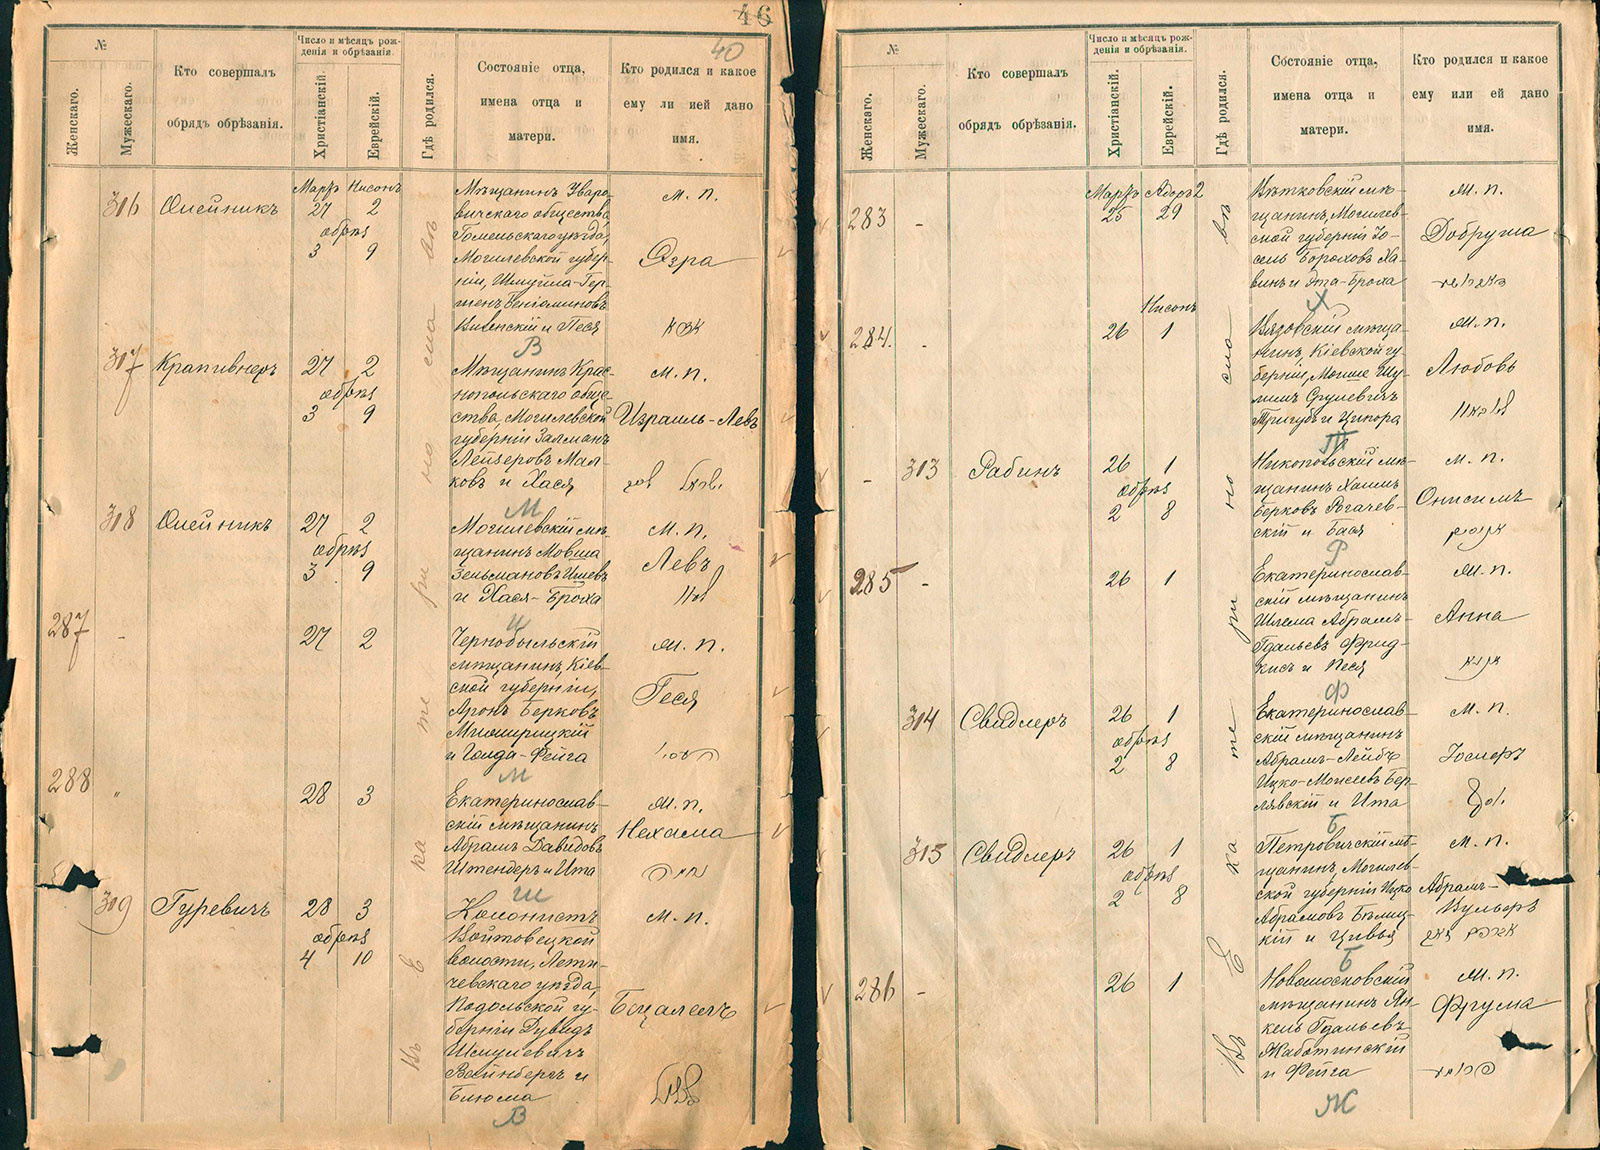 46
40
№
Женскаго.
Мужескаго.
Кто совершалъ
обрядъ обрѣзанія.
Число и мѣсяцъ рож-
денія и обрѣзанія.
Христіанскій.
Еврейскій.
Гдѣ родился.
Состояніе отца,
имена отца и
матери.
Кто родился и какое
ему ли ией дано
имя.
316
Олейникъ
Мартъ Нисонъ
27 2
обрѣз
3 9
Мѣщанинъ Уваро-
вичскаго общества,
Гомельскаго уѣзда,
Могилевской губер-
ніи, Шмуйла-Гер-
шенъ Беніаминовъ
и Песя
В
м. п.
Азра
317
Крапивнеръ
27 2
обрѣз
3 9
Мѣщанинъ Крас-
нопольскаго обще-
ства, Могилевской
губерніи Залманъ
Лейзеровъ Мал-
ковъ и Хася
М
м. п.
Израиль-Левъ
318
Олейникъ
27 2
обрѣз
3 9
Могилевскій мѣ-
щанинъ Мовша
Зельмановъ
и Хася-Броха
Ц
м. п.
Левъ
287
27 2
Чернобыльскій
мѣщанинъ, Кіев-
ской губерніи,
Аронъ Берковъ
и Голда-Фейга
М
м. п.
Геся
288
28 3
Екатеринослав-
скій мѣщанинъ
Абрамъ Давидовъ
Штендеръ и Ита
Ш
м. п.
Нехама
319
Гуревичъ
28 3
обрѣз
4 10
Колонистъ
Войтовецкой
волости, Лети-
чевскаго уѣзда,
Подольской гу-
берніи Дувидъ
Шмулевичъ
Вайнбергъ и
Блюма
В
м. п.
Бецалелъ
Въ Екатеринославѣ
№
Женскаго.
Мужескаго.
Кто совершалъ
обрядъ обрѣзанія.
Число и мѣсяцъ рож-
денія и обрѣзанія.
Христіанскій.
Еврейскій.
Гдѣ родился.
Состояніе отца,
имена отца и
матери.
Кто родился и какое
ему или ей дано
имя.
283
Мартъ Адоръ 2
25 29
Вѣтковскій мѣ-
щанинъ, Могилев-
ской губерніи Іо-
сель Бороховъ Ха-
винъ и Эта-Броха
Х
м. п.
Добруша
284
Нисонъ
26 1
Вязовскій мѣща-
нинъ, Кіевской гу-
берніи, Мошше Шу-
лимъ Срулевичъ
Тригубъ и Ципора
Т
м. п.
Любовь
313
Рабинъ
26 1
обрѣз
2 8
Никопольскій мѣ-
щанинъ Хаимъ
Берковъ Рогачев-
скій и Бася
Р
м. п.
Онисимъ
285
26 1
Екатеринослав-
скій мѣщанинъ
Шлема Абрамъ-
Гдальевъ Фрид-
кисъ и Песя
Ф
м. п.
Анна
314
Свидлеръ
26 1
обрѣз
2 8
Екатеринослав-
скій мѣщанинъ
Абрамъ-Лейбъ
Ицко-Моисеевъ Бер-
лявскій и Ита
Б
м. п.
315
Свидлеръ
26 1
обрѣз
2 8
Петровичскій мѣ-
щанинъ, Могилев-
ской губерніи Ицко
Абрамовъ Бѣлиц-
кій и Цивья
Б
м. п.
Абрамъ-
Вульфъ
286
26 1
Новомосковскій
мѣщанинъ Ян-
кель Гдальевъ
Жаботинскій
и Фейга
Ж
м. п.
Фрума
Въ Екатеринославѣ